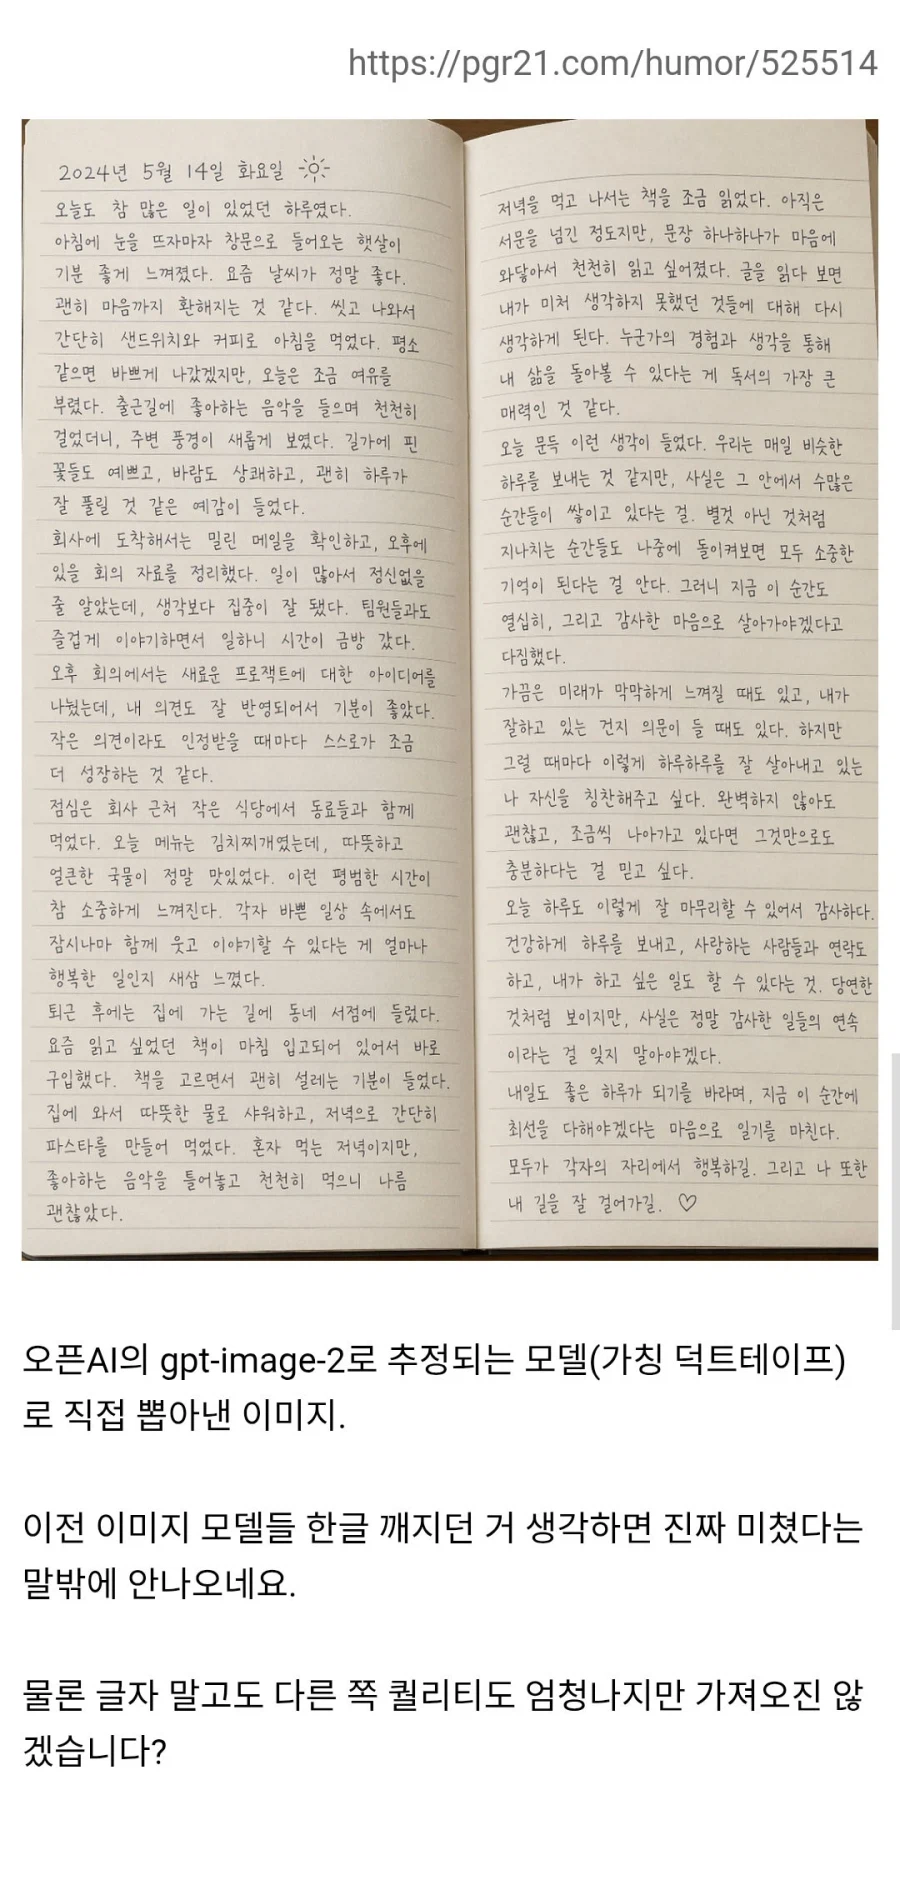 https://pgr21.com/humor/525514
2024년 5월 14일 화요일
오늘도 참 많은 일이 있었던 하루였다.
아침에 눈을 뜨자마자 창문으로 들어오는 햇살이
기분 좋게 느껴졌다. 요즘 날씨가 정말 좋다.
괜히 마음까지 환해지는 것 같다. 씻고 나와서
간단히 샌드위치와 커피로 아침을 먹었다. 평소
같으면 바쁘게 나갔겠지만, 오늘은 조금 여유를
부렸다. 출근길에 좋아하는 음악을 들으며 천천히
걸었더니, 주변 풍경이 새롭게 보였다. 길가에 핀
꽃들도 예쁘고, 바람도 상쾌하고, 괜히 하루가
잘 풀릴 것 같은 예감이 들었다.
회사에 도착해서는 밀린 메일을 확인하고, 오후에
있을 회의 자료를 정리했다. 일이 많아서 정신없을
줄 알았는데, 생각보다 집중이 잘 됐다. 팀원들과도
즐겁게 이야기하면서 일하니 시간이 금방 갔다.
오후 회의에서는 새로운 프로젝트에 대한 아이디어를
나눴는데, 내 의견도 잘 반영되어서 기분이 좋았다.
작은 의견이라도 인정받을 때마다 스스로가 조금
더 성장하는 것 같다.
점심은 회사 근처 작은 식당에서 동료들과 함께
먹었다. 오늘 메뉴는 김치찌개였는데, 따뜻하고
얼큰한 국물이 정말 맛있었다. 이런 평범한 시간이
참 소중하게 느껴진다. 각자 바쁜 일상 속에서도
잠시나마 함께 웃고 이야기할 수 있다는 게 얼마나
행복한 일인지 새삼 느꼈다.
퇴근 후에는 집에 가는 길에 동네 서점에 들렀다.
요즘 읽고 싶었던 책이 마침 입고되어 있어서 바로
구입했다. 책을 고르면서 괜히 설레는 기분이 들었다.
집에 와서 따뜻한 물로 샤워하고, 저녁으로 간단히
파스타를 만들어 먹었다. 혼자 먹는 저녁이지만,
좋아하는 음악을 틀어놓고 천천히 먹으니 나름
괜찮았다.
저녁을 먹고 나서는 책을 조금 읽었다. 아직은
서문을 넘긴 정도지만, 문장 하나하나가 마음에
와닿아서 천천히 읽고 싶어졌다. 글을 읽다 보면
내가 미처 생각하지 못했던 것들에 대해 다시
생각하게 된다. 누군가의 경험과 생각을 통해
내 삶을 돌아볼 수 있다는 게 독서의 가장 큰
매력인 것 같다.
오늘 문득 이런 생각이 들었다. 우리는 매일 비슷한
하루를 보내는 것 같지만, 사실은 그 안에서 수많은
순간들이 쌓이고 있다는 걸. 별것 아닌 것처럼
지나치는 순간들도 나중에 돌이켜보면 모두 소중한
기억이 된다는 걸 안다. 그러니 지금 이 순간도
열심히, 그리고 감사한 마음으로 살아가야겠다고
다짐했다.
가끔은 미래가 막막하게 느껴질 때도 있고, 내가
잘하고 있는 건지 의문이 들 때도 있다. 하지만
그럴 때마다 이렇게 하루하루를 잘 살아내고 있는
나 자신을 칭찬해주고 싶다. 완벽하지 않아도
괜찮고, 조금씩 나아가고 있다면 그것만으로도
충분하다는 걸 믿고 싶다.
오늘 하루도 이렇게 잘 마무리할 수 있어서 감사하다.
건강하게 하루를 보내고, 사랑하는 사람들과 연락도
하고, 내가 하고 싶은 일도 할 수 있다는 것. 당연한
것처럼 보이지만, 사실은 정말 감사한 일들의 연속
이라는 걸 잊지 말아야겠다.
내일도 좋은 하루가 되기를 바라며, 지금 이 순간에
최선을 다해야겠다는 마음으로 일기를 마친다.
모두가 각자의 자리에서 행복하길. 그리고 나 또한
내 길을 잘 걸어가길. ♡
오픈AI의 gpt-image-2로 추정되는 모델(가칭 덕트테이프)
로 직접 뽑아낸 이미지.
이전 이미지 모델들 한글 깨지던 거 생각하면 진짜 미쳤다는
말밖에 안나오네요.
물론 글자 말고도 다른 쪽 퀄리티도 엄청나지만 가져오진 않
겠습니다?